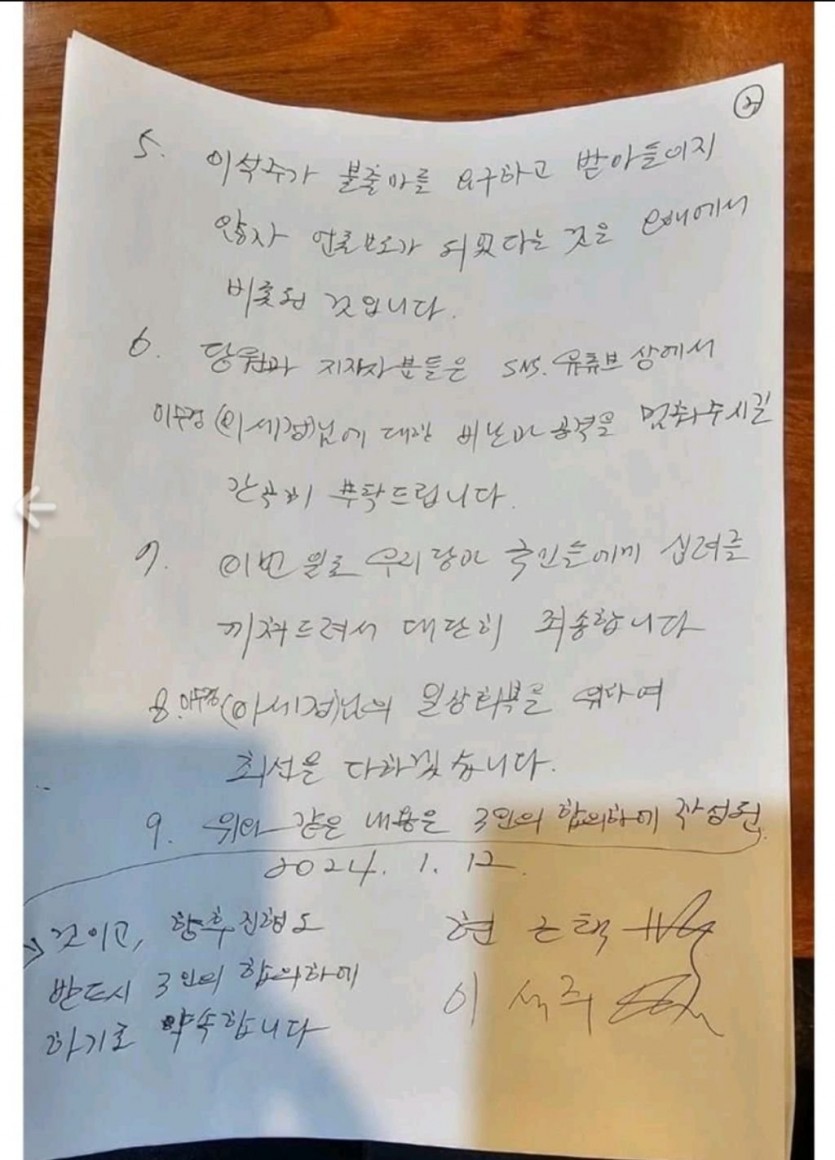 ②
5. 이석주가 불출마를 요구하고 받아들이지
않자 언론보도가 되었다는 것은 오해에서
비롯된 것입니다.
6. 당원과 지지자분들은 SNS. 유튜브 상에서
이수정(이세정)님에 대한 비난과 공격을 멈춰주시길
간곡히 부탁드립니다.
7. 이번 일로 우리당과 국민들에게 심려를
끼쳐드려서 대단히 죄송합니다
8. (이세정)님의 일상회복을 위하여
최선을 다하겠습니다.
9. 위와 같은 내용은 3인의 합의하에 작성된
→ 것이고, 향후진행도
반드시 3인의 합의하에
하기로 약속합니다
2024. 1. 12.
현근택
이석주